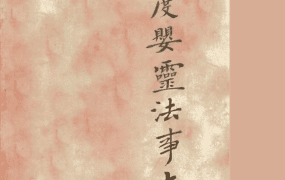 度嬰靈法事